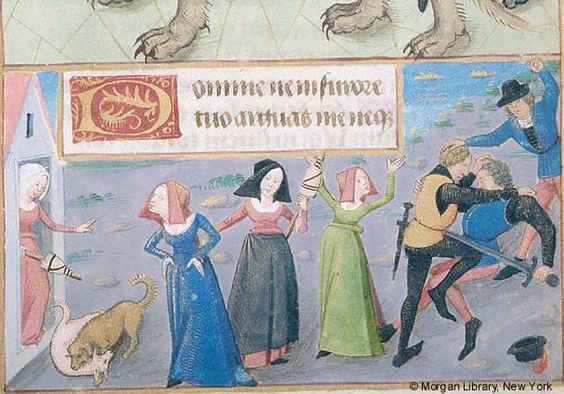 Domine ne in furore
tuo arguas me neqꝫ
© Morgan Library, New York